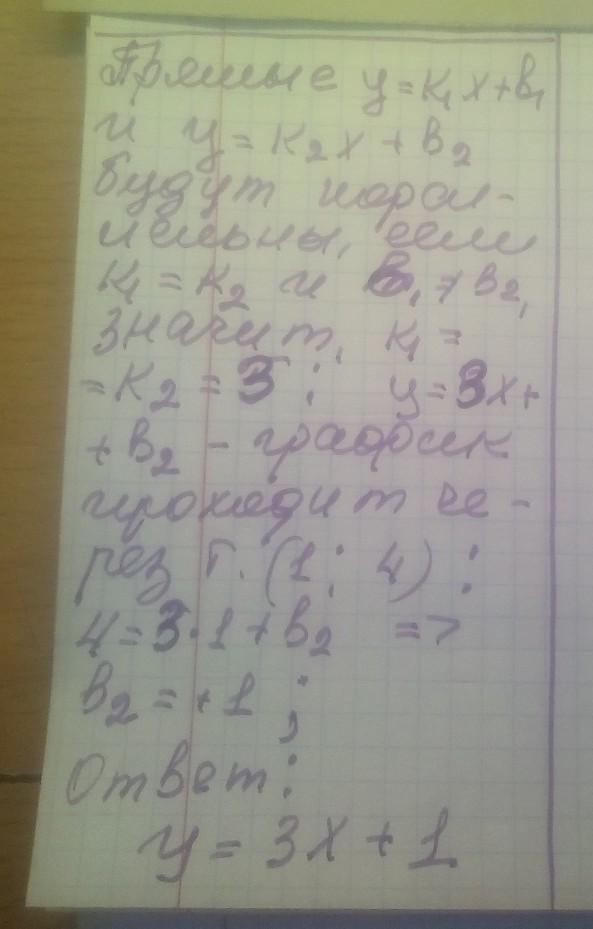 Прямые y=k₁x+b₁
и y=k₂x+b₂
будут парал-
лельны, если
k₁=k₂ и b₁≠b₂,
значит, k₁=
=k₂=3; y=3x+
+b₂ - график
проходит че-
рез т. (1; 4):
4=3·1+b₂ =>
b₂=+1;
Ответ:
y=3x+1